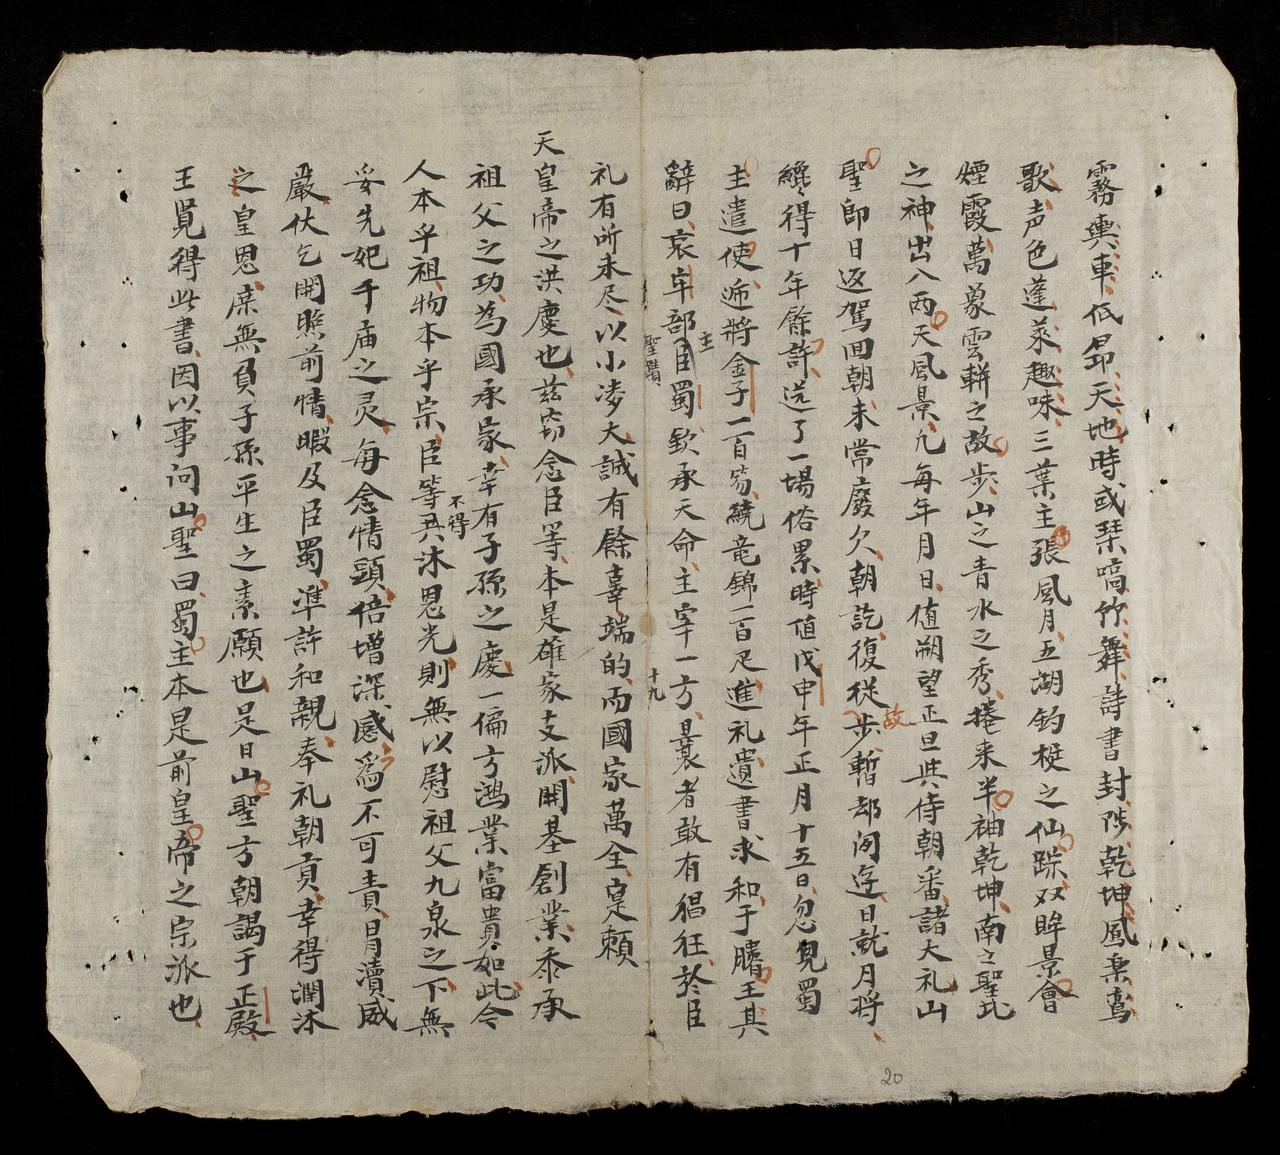 霧輿車低昂天地時或琴嗃竹舞詩書封陟乾坤風乘鸞
歌声色蓬萊趣味三葉主張風月五湖釣梃之仙踪双眸景會
煙霞萬象雲軿之故步山之青水之秀捲来半袖乾坤南之聖北
之神出入两天風景凢每年月日值朔望正旦與侍朝番諸大礼山
聖即日返駕囬朝未常廢欠朝訖復從故步暫却闲遊日就月將
纔得十年餘許送了一場俗累時值戊申年正月十五日忽見蜀
主遣使遞將金子一百笏繞竜錦一百疋進礼遺書求和于睿王其
辭曰哀牢部主臣聖躓蜀欽承天命主宰一方曩者敢有猖狂於臣
礼有所未尽以小凌大誠有餘辜端的而國家萬全寔賴
天皇帝之洪慶也茲窃念臣等本是雄家支派開基創業忝承
祖父之功為國承家幸有子孫之慶一偏方鴻業富貴如此今
人本乎祖物本乎宗臣等不得其沐恩光則無以慰祖父九泉之下無
妥先妃千庙之灵每念情頭倍增深感焉不可責冒瀆威
嚴伏乞開照前情暇及臣蜀準許和親奉礼朝貢幸得潤沐
之皇恩庶無負子孫平生之素願也是日山聖方朝謁于正殿
王覓得此書因以事问山聖曰蜀主本是前皇帝之宗派也
十九
20